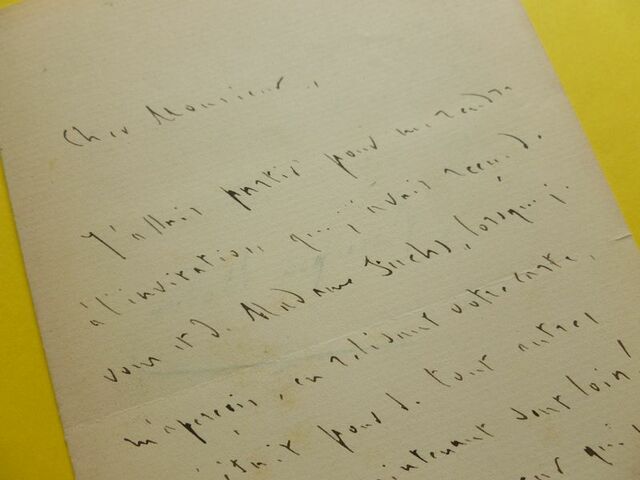 Cher Monsieur,
J'allais partir pour me rendre
à l'invitation que j'avais reçue de
vous et de Madame Fuchs, lorsque je
m'aperçois, en relisant votre carte,
était pour de tout autres
maintenant sont loin!
qui